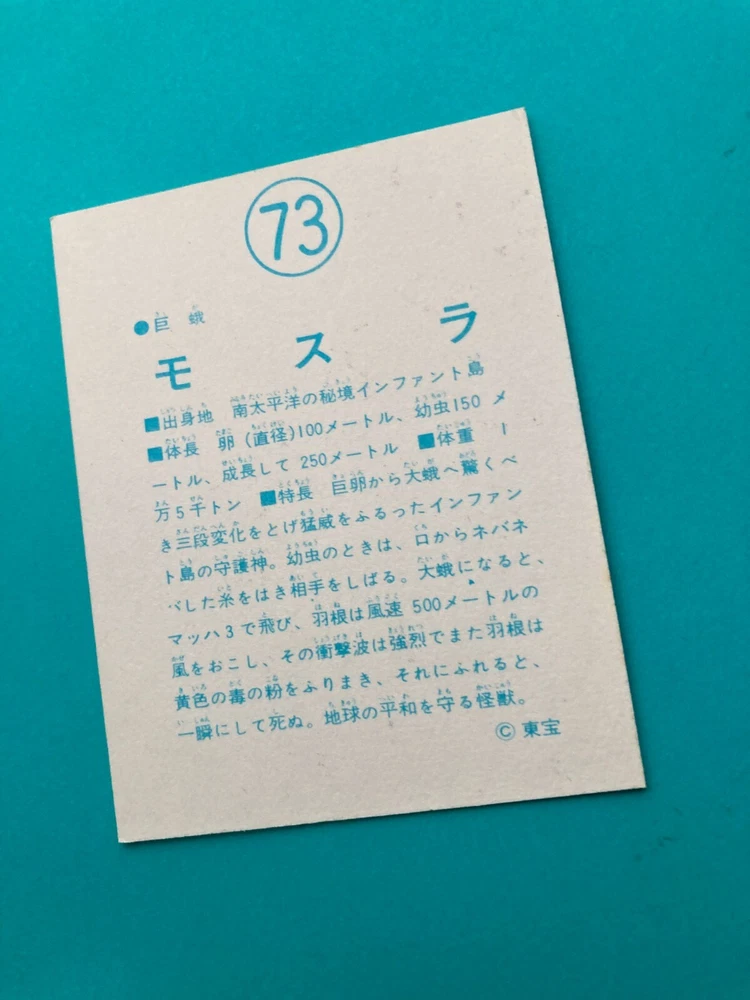 73
●巨蛾
モスラ
■出身地 南太平洋の秘境インファント島
■体長 卵(直径)100メートル、幼虫150メ
ートル、成長して250メートル ■体重 1
万5千トン ■特長 巨卵から大蛾へ驚くべ
き三段変化をとげ猛威をふるったインファン
ト島の守護神。幼虫のときは、口からネバネ
バした糸をはき相手をしばる。大蛾になると、
マッハ3で飛び、羽根は風速500メートルの
風をおこし、その衝撃波は強烈でまた羽根は
黄色の毒の粉をふりまき、それにふれると、
一瞬にして死ぬ。地球の平和を守る怪獣。
©東宝